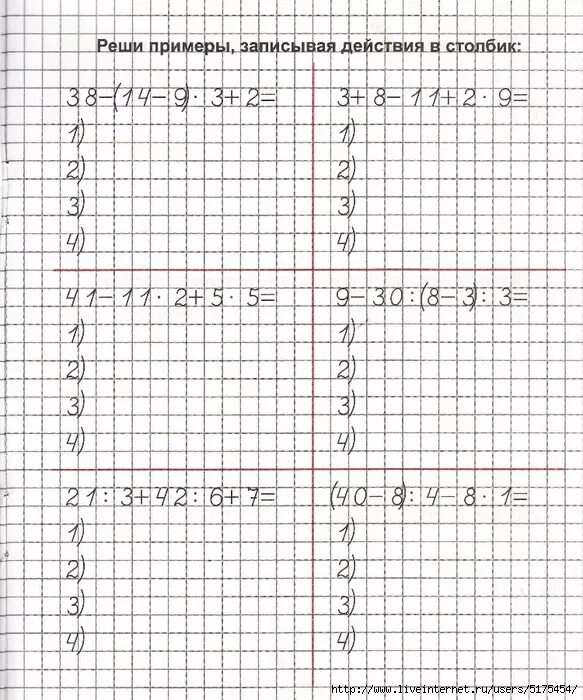 Реши примеры, записывая действия в столбик:
38-(14-9)· 3+2=
1)
2)
3)
4)
3+8-11+2·9=
1)
2)
3)
4)
41-11·2+5·5=
1)
2)
3)
4)
9-30:(8-3):3=
1)
2)
3)
4)
21:3+42:6+7=
1)
2)
3)
4)
(40-8):4-8·1=
1)
2)
3)
4)
http://www.liveinternet.ru/users/5175454/